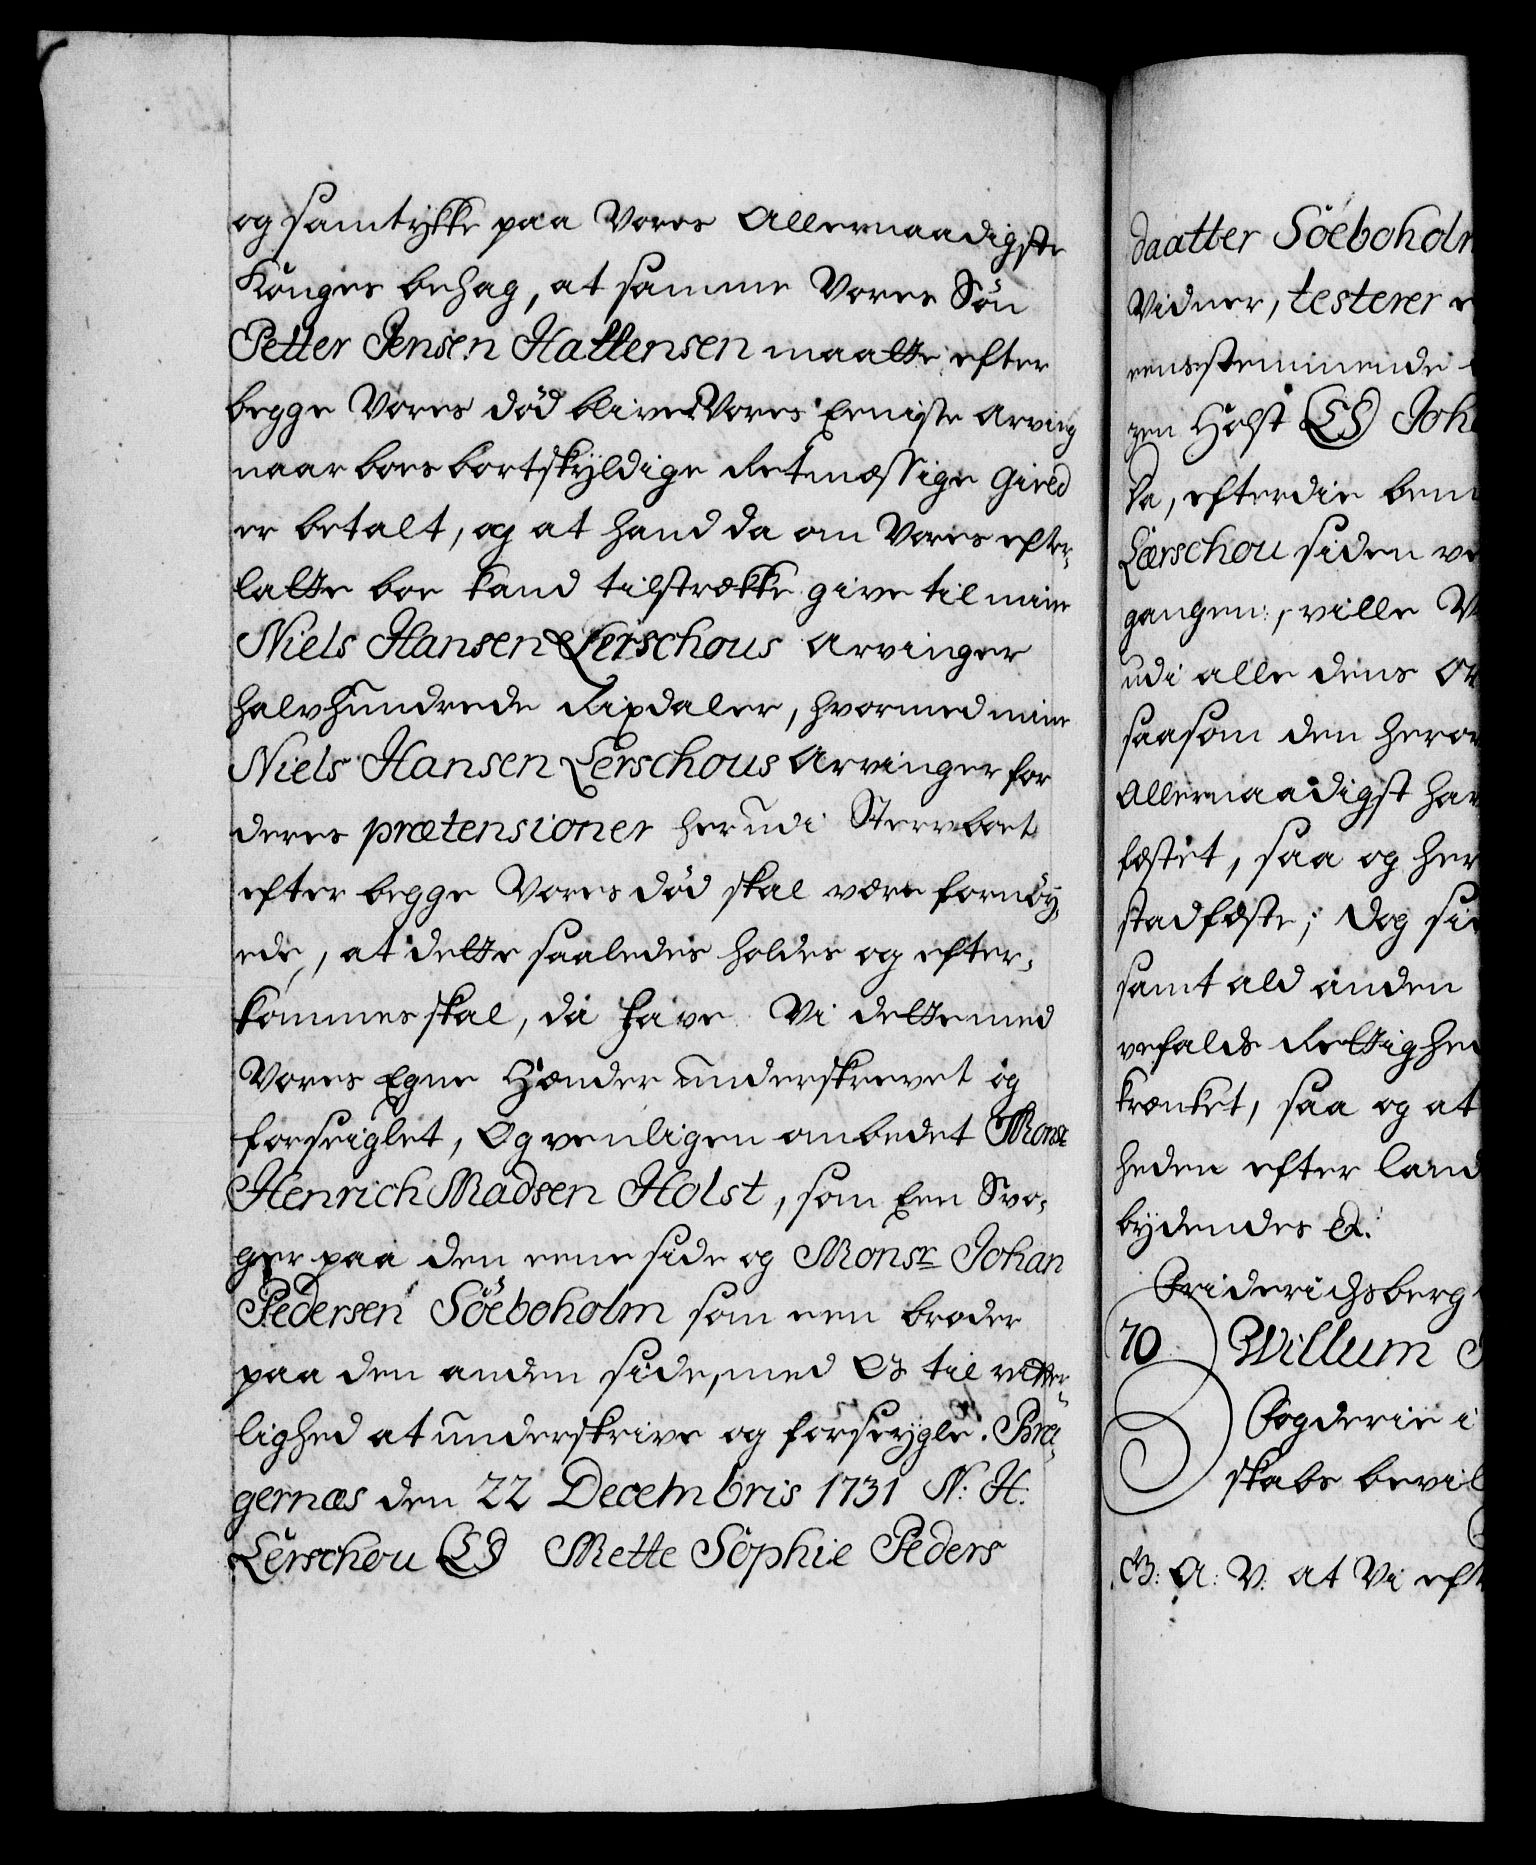 og samtykke paa Vores Allernaadigste
Konges behag, at samme Vores Søn
Petter Jensen Hattensen maatte, efter
begge Vores død blive Vores Eeniste Arving
naar boes bortskyldige Retmæssige Gield
er betalt, og at hand da om Vores efter-
latte boe kand tilstrække give til mine
Niels Hansen Lerschous Arvinger
halvhundrede Rixdaler, hvormed mine
Niels Hansen Lerschous Arvinger for
deres prætensioner herudi Sterwboet
efter begge Vores død skal være fornøy-
ede, at dette saaledes holdes og efter-
kommes skal, da have Vi dette med
Vores Egne Hænder underskrevet og
forseiglet, Og venligen ombedet Monsr
Henrich Madsen Holst, som Een Svo-
ger paa den eene side og Monsr Johan
Pedersen Söeboholm som een broder
paa den anden side, med Os til vitter-
lighed at underskrive og forseygle. Bra-
gernæs den 22 Decembris 1731 N: H:
Lerschou LS Mette Sophie Peders
daatter Söeboholm
Vidner, testerer
eensstemmende
gen Holst (LS) Joh
Da, efterdie bem
Lærschou siden ve
gangen, ville V
udi alle dens Or
saasom den heror
Allernaadigst har
fæstet, saa og her
stadfæste; Dog si
samt ald anden
vefalds Rettighed
krænket, saa og at
heden efter land
bydendes &.
Friderichsberg
70 Willum
Fogderie i
skabs bevil
G: A: V: at Vi eft